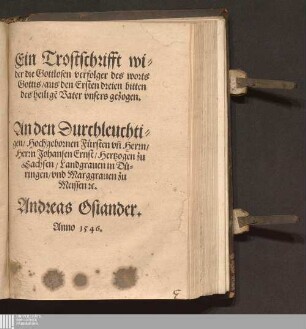 Ein Trostschrifft wi-
der die Gottlosen verfolger des worts
Gottes / aus den Ersten dreien bitten
des heilige Vater vnsers gezogen.
An den Durchleuchti-
gen / Hochgebornen Fürsten vñ Herrn /
Herrn Johansen Ernst / Hertzogen zu
Sachsen / Landgrauen in Dü-
ringen / vnd Marggrauen zu
Meissen ꝛc.
Andreas Osiander.
Anno 1546.